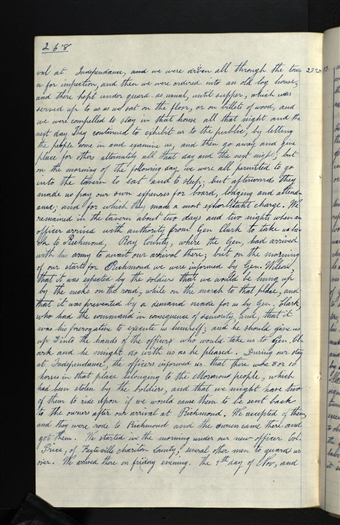 268
val at Independance, and we were driven all through the town
for inspection, and then we were ordered into an old log house,
and there kept under guard as usual, until supper, which was
served up to us as we sat on the floor, or on billets of wood, and
we were compelled to stay in that house all that night and the
next day. They continued to exhibit us to the public, by letting
the people come in and examine us, and then go away and give
place for others alternately all that day and the next night; but
on the morning of the following day we were all permitted to go
into the tavern to eat and to sleep, but afterwards they
made us pay our own expenses for board, lodging and attend-
ance, and for which they made a most exhorbitant charge. We
remained in the tavern about two days and two nights when an
officer arrived with authority from Gen Clark to take us
to Richmond, Ray County, where the Gen, had arrived
with his army to await our arrival there; but on the morning
of our start for Richmond we were informed by Gen. Wilson,
that it was expected by the soldiers that we would be hung up
by the necks on the road, while on the march to that place, and
that it was prevented by a demand made for us by Gen. Clark
who had the command in consequence of seniority, and, that it
was his prerogative to execute us himself; and he should give us
up into the hands of the officer who would take us to Gen. Cl-
ark and he might do with us as he pleased. During our stay
at Independance, the officers informed us that there were 8 or 10
horses in that place belonging to the Mormon people, which
had been stolen by the soldiers, and that we might have two
of them to ride upon if we would cause them to be sent back
to the owner after our arrival at Richmond, We accepted of them,
and they were rode to Richmond and the owners came there and
got them. We started in the morning under our new officer Col.
Price, of Keytsville chariton County; several other men to guard us
over. We arrived there on friday evening. the 9th day of Nov, and